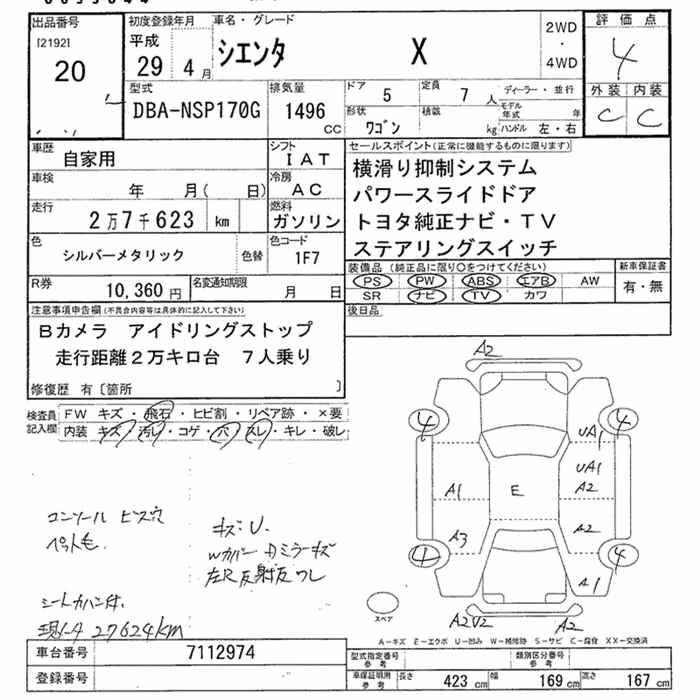 出品番号
[2192]
20
初度登録年月
平成
29 4月
車名・グレード
シエンタ X
2WD
・
4WD
評価点
4
外装 内装
C C
型式
DBA-NSP170G
排気量
1496 CC
ドア 5
定員 7人
形状 ワゴン
積載 kg
ディーラー・並行
モデル年式 年
ハンドル 左・右
車歴
自家用
シフト
IAT
車検
年 月( 日)
冷房
AC
走行
2万7千623 km
燃料
ガソリン
色
シルバーメタリック
色替
色コード
1F7
R券
10,360円
名変通知期限
月 日
セールスポイント(正常に機能するものに限ります)
横滑り抑制システム
パワースライドドア
トヨタ純正ナビ・TV
ステアリングスイッチ
装備品(純正品に限り○をつけてください)
PS PW ABS エアB AW
SR ナビ TV カワ
新車保証書
有・無
後日品
注意事項申告欄(不具合内容等は具体的に記入して下さい)
Bカメラ アイドリングストップ
走行距離2万キロ台 7人乗り
修復歴 有〔箇所 〕
検査員記入欄
FW キズ・飛石・ヒビ割・リペア跡・×要
内装 キズ・汚レ・コゲ・穴・スレ・キレ・破レ
コンソール ビス穴
ペット毛
キズ・U.
Wカバー・カミラーキズ
左R反射反ワレ
シートカバー付.
現メータ 27624km
A2
4 4
UA1
UA1
A1 E A2
A3 A2
4 4
A1
スペア
A2U2 A2
A-キズ E-エクボ U-凹み W-補修跡 S-サビ C-腐食 XX-交換済
車台番号 7112974
登録番号
型式指定番号 参考
類別区分番号 参考
車保証明用 参考
長さ 423 cm 幅 169 cm 高さ 167 cm